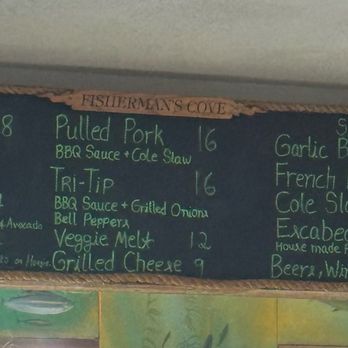 FISHERMAN'S COVE
8
Avocado
Pulled Pork 16
BBQ Sauce + Cole Slaw
Tri-Tip 16
BBQ Sauce + Grilled Onions
Bell Peppers
Veggie Melt 12
Grilled Cheese 9
S
Garlic B
French
Cole Sla
Escabec
House made
Beers, Win